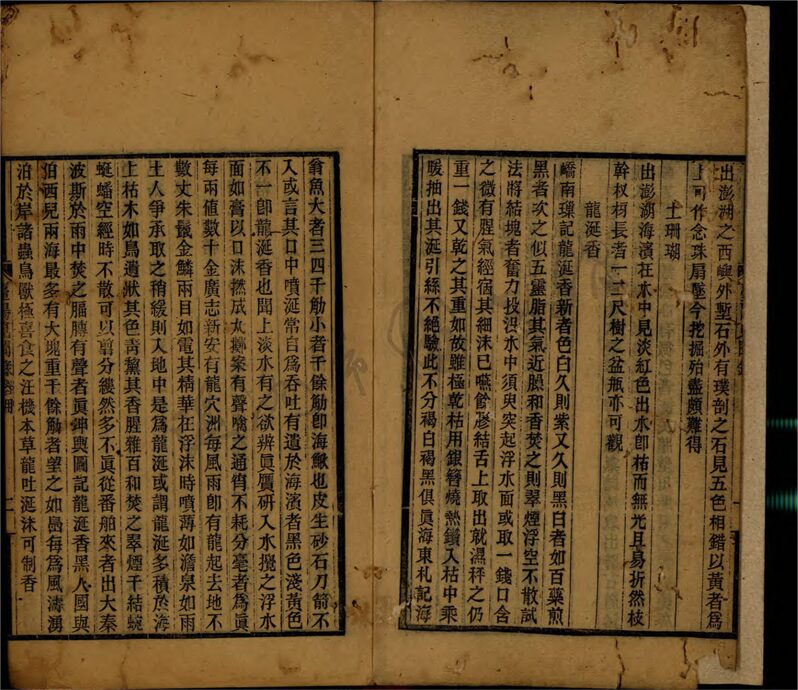 出澎湖之西嶼外塹石外有璞剖之石見五色相錯以黃者為
上可作念珠扇墜今挖掘殆盡頗難得
土珊瑚
出澎湖海濱在水中見淡紅色出水即枯而無光且易折然枝
幹杈枒長者一二尺樹之盆瓶亦可觀
龍涎香
嶠南璅記龍涎香新者色白久則紫又久則黑白者如百藥煎
黑者次之似五靈脂其氣近臊和香焚之則翠煙浮空不散試
法將結塊者奮力投沒水中須臾突起浮水面或取一錢口含
之微有腥氣經宿其細沫已嚥餘膠結舌上取出就濕秤之仍
重一錢又乾之其重如故雖極乾枯用銀簪燒熱鑽入枯中乘
暖抽出其涎引絲不絕驗此不分褐白褐黑俱真海東札記海
翁魚大者三四千觔小者千餘觔即海鰍也皮生砂石刀箭不
入或言其口中噴涎常自為吞吐有遺於海濱者黑色淺黃色
不一即龍涎香也聞上淡水有之欲辨真贋研入水攪之浮水
面如膏以口沫撚成丸擲案有聲噙之通宵不耗分毫者為真
每兩值數十金廣志新安有龍穴洲每風雨即有龍起去地不
數丈朱鬣金鱗兩目如電其精華在浮沫時噴薄如澹泉如雨
土人爭承取之稍緩則入地中是為龍涎或謂龍涎多積於海
上枯木如鳥遺狀其色青黧其香腥雜百和焚之翠煙千結蜿
蜒蟠空經時不散可以剪分縷然多不真從番舶來者出大秦
波斯於雨中焚之腷膊有聲者真坤輿圖記龍涎香黑人國與
伯西兒兩海最多有大塊重千餘觔者望之如島每為風濤湧
泊於岸諸蟲鳥獸極喜食之汪機本草龍吐涎沫可制香